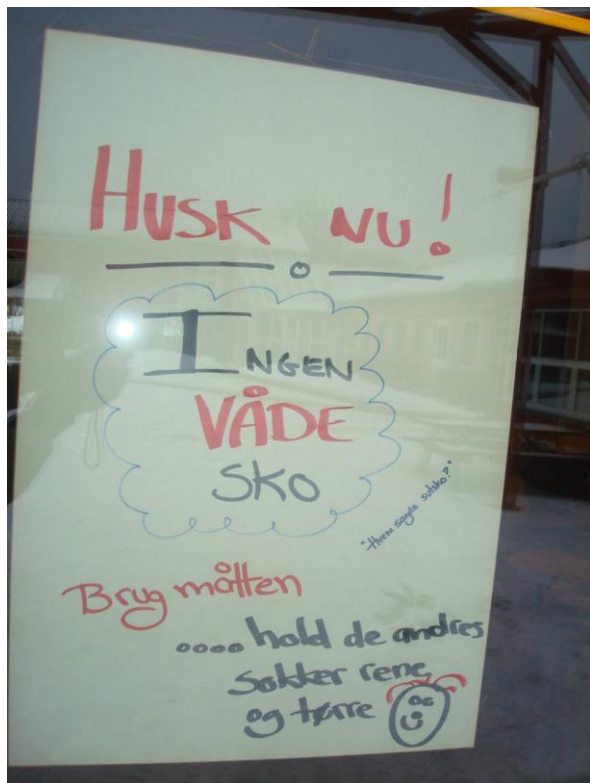 HUSK NU!
INGEN
VÅDE
SKO
"Hvem sagde sutsko?"
Brug måtten
.... hold de andres
sokker rene
og tørre